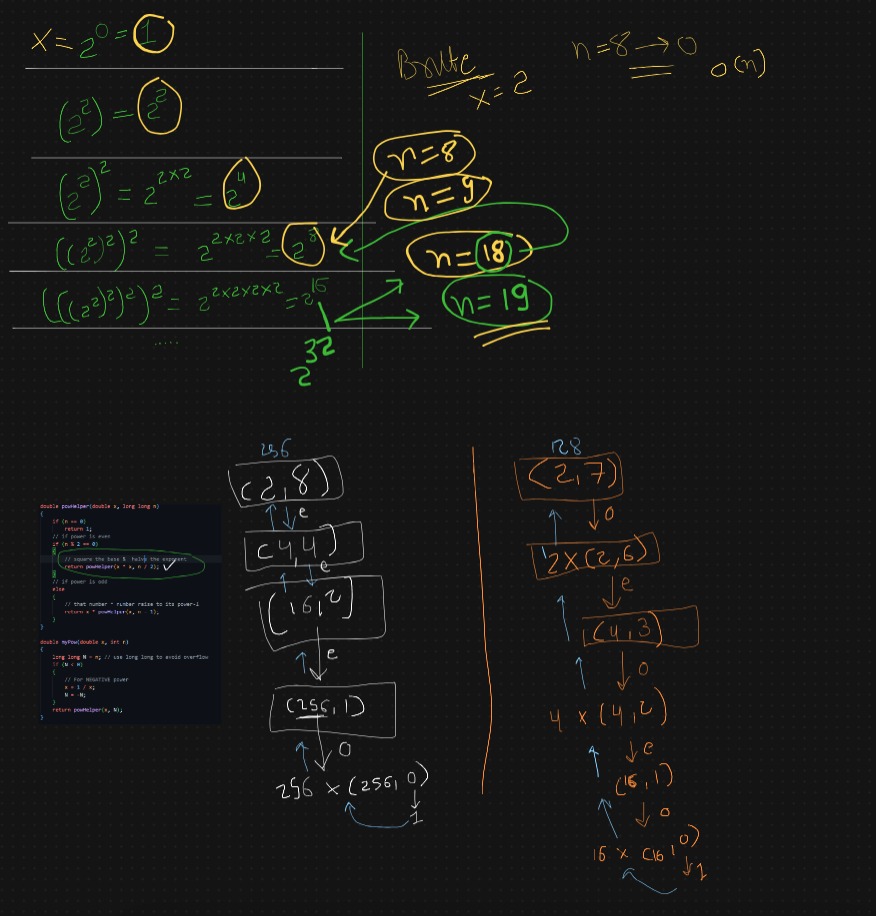 x = 2^0 = 1
(2^2) = 2^2
(2^2)^2 = 2^2×2 = 2^4
((2^2)^2)^2 = 2^2×2×2 = 2^8
(((2^2)^2)^2)^2 = 2^2×2×2×2 = 2^16
.....
2^32
Brute
x = 2
n=8 → 0
O(n)
n=8
n=9
n=18
n=19
double powHelper(double x, long long n)
{
if (n == 0)
return 1;
// if power is even
if (n % 2 == 0)
{
// square the base & halve the exponent
return powHelper(x * x, n / 2);
}
// if power is odd
else
{
// that number * number raise to its power-1
return x * powHelper(x, n - 1);
}
}
double myPow(double x, int n)
{
long long N = n; // use long long to avoid overflow
if (N < 0)
{
// For NEGATIVE power
x = 1 / x;
N = -N;
}
return powHelper(x, N);
}
256
(2,8)
e
(4,4)
e
(16,2)
e
(256,1)
O
256 × (256,0)
1
128
(2,7)
O
2×(2,6)
e
(4,3)
O
4 × (4,2)
e
(16,1)
O
16 × (16,0)
1